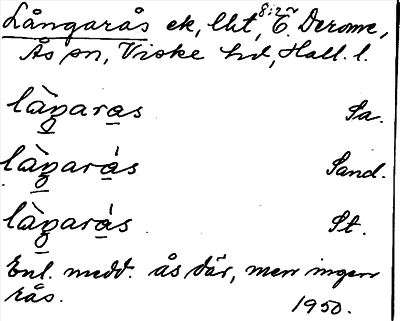 Långarås ek, lht, 8:2 Ö. Derome,
Ås sn, Viske hd, Hall. l.
là̀ŋaras Sa.
là̀ŋarás Sand.
là̀ŋarás St.
Enl. medd. ås där, men ingen
rås. 1950.